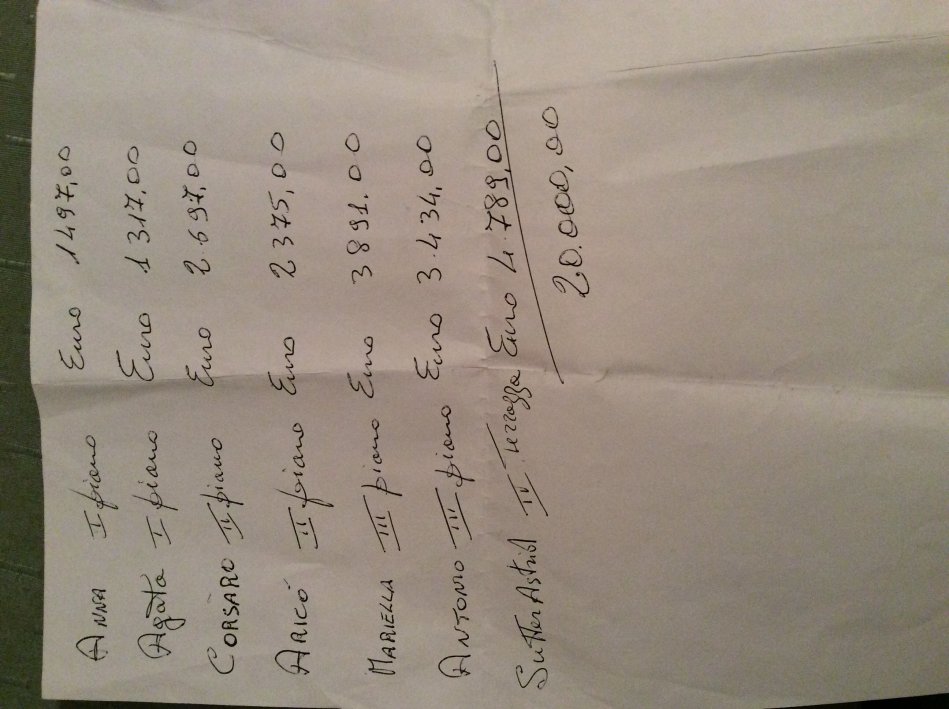 ANNA I piano Euro 1497,00
Agata I piano Euro 1317,00
CORSARO II piano Euro 2.697,00
ARICÓ II piano Euro 2375,00
MARIELLA III piano Euro 3891.00
ANTONIO III piano Euro 3.434,00
Sutter Astrid IV Terrazza Euro 4.789,00
20.000,00